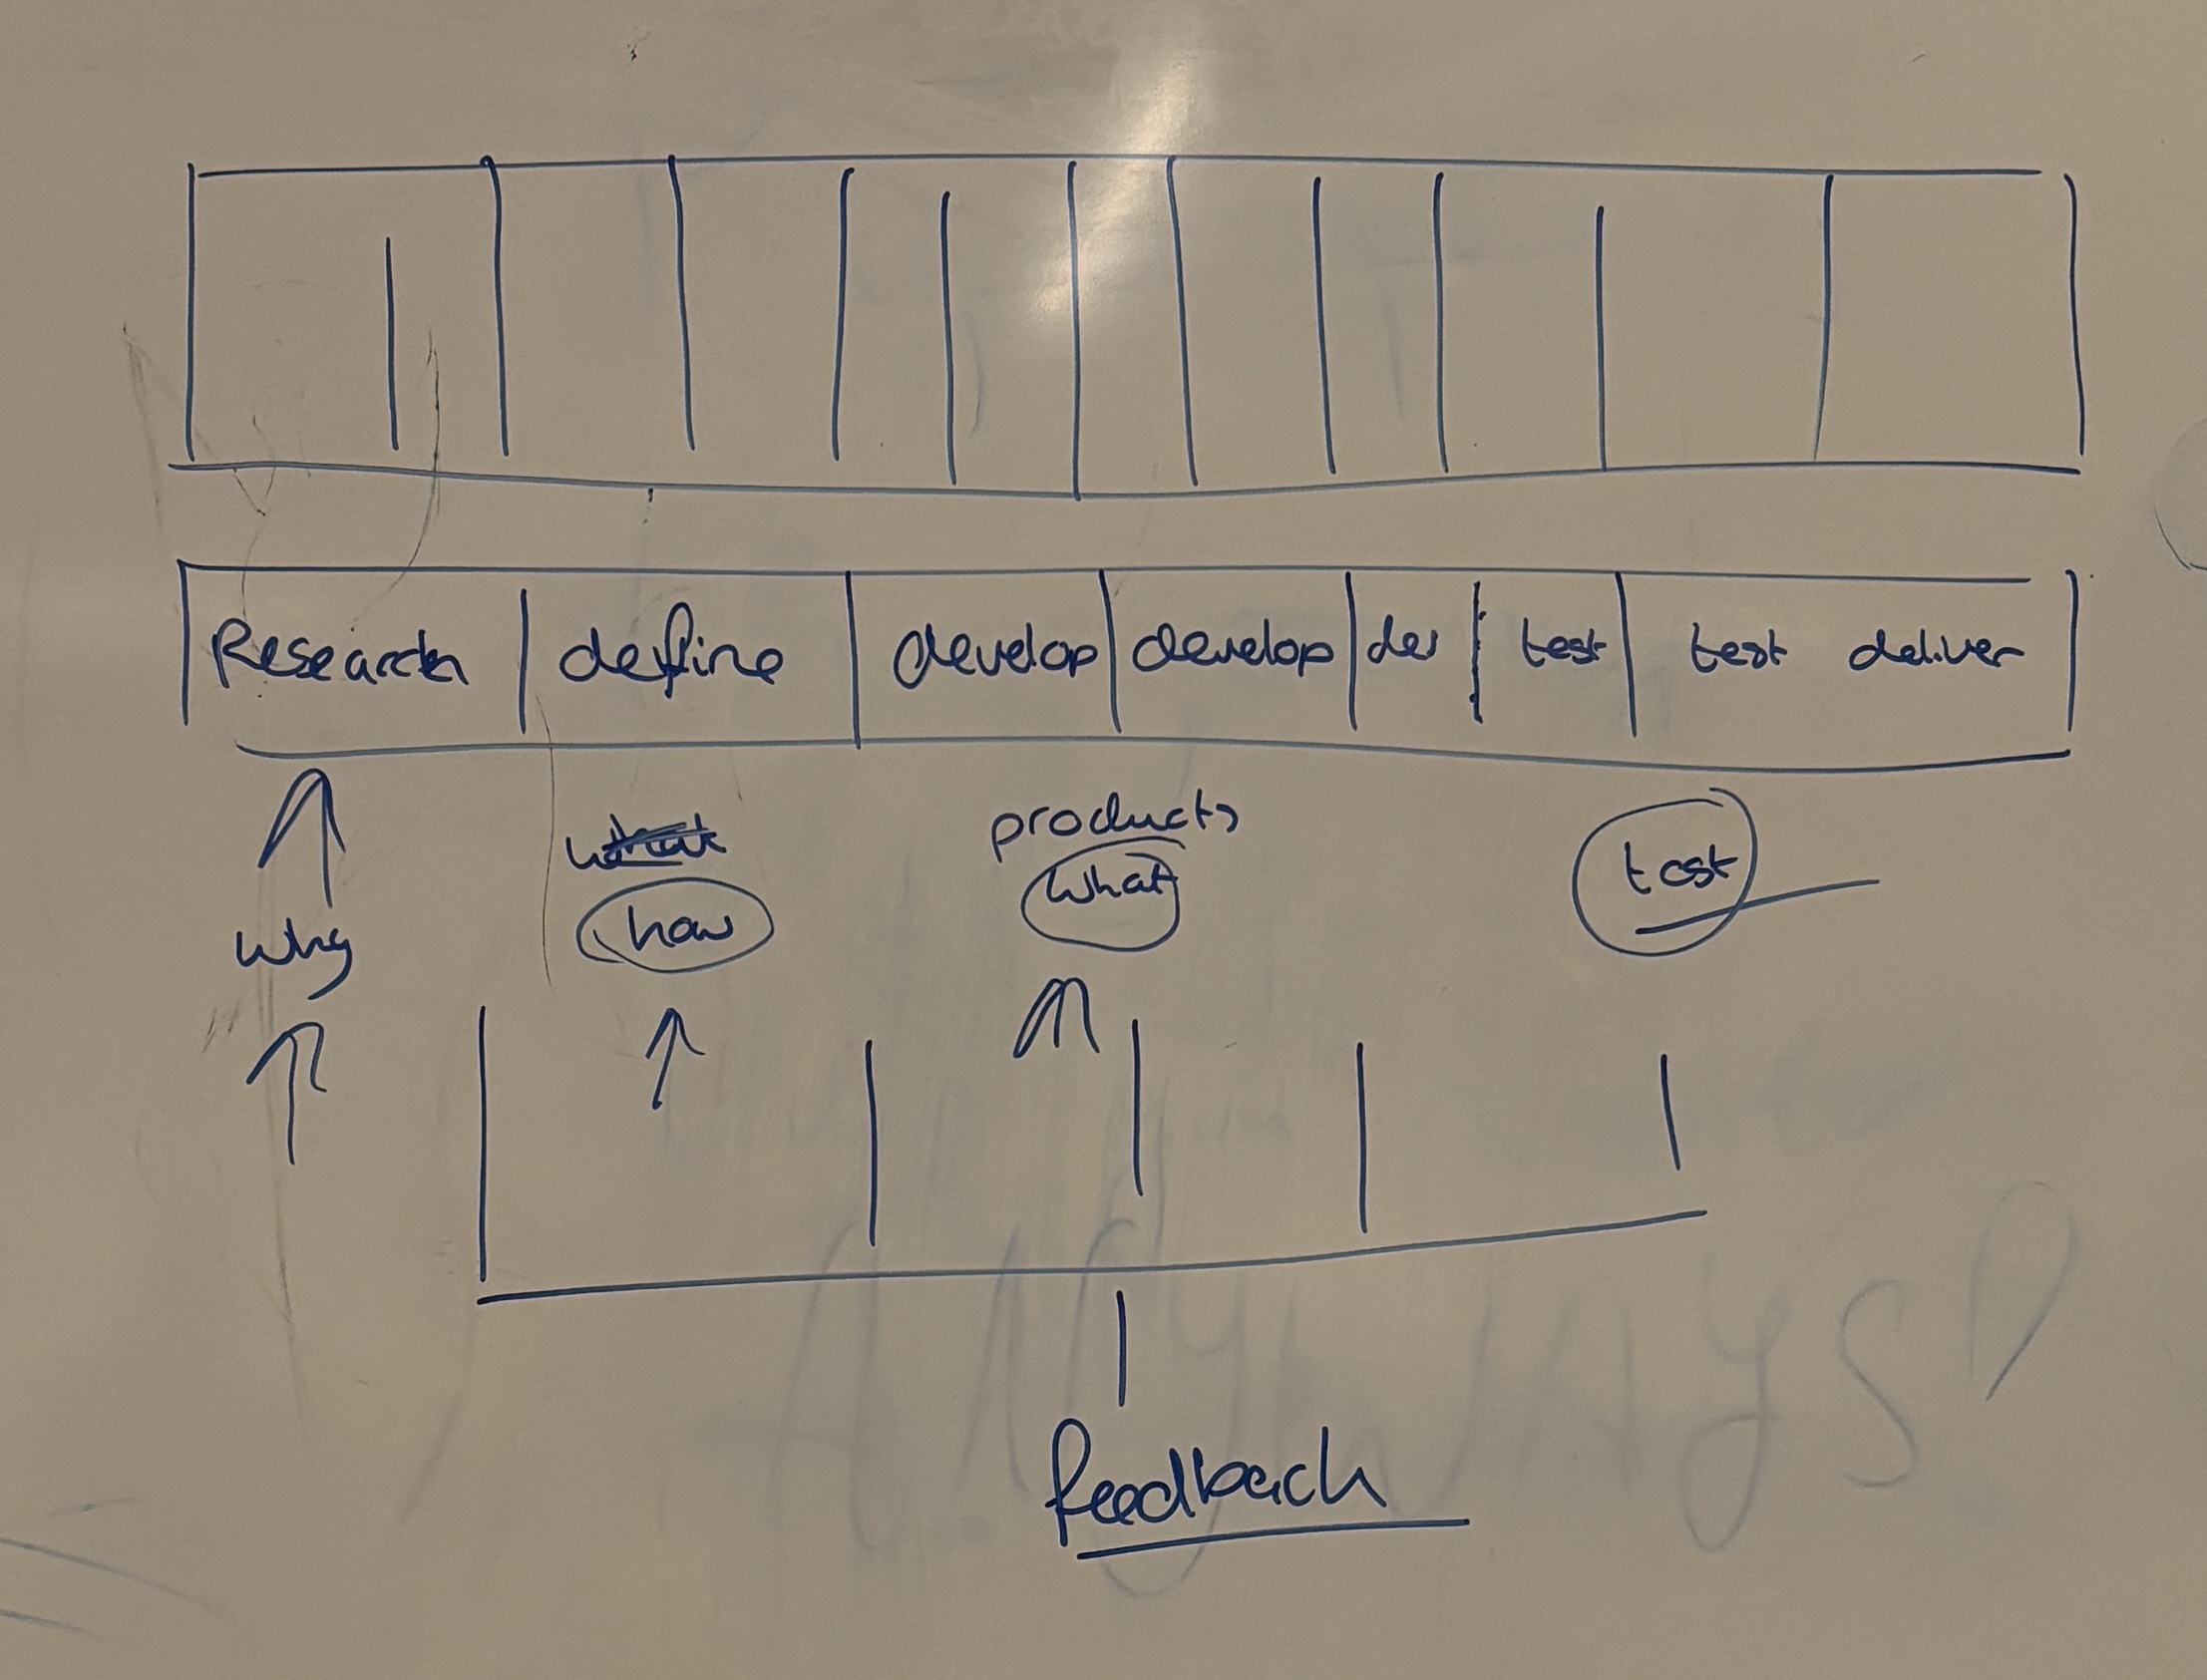 Research define develop develop dev test test deliver
products
what
test
how
why
feedback